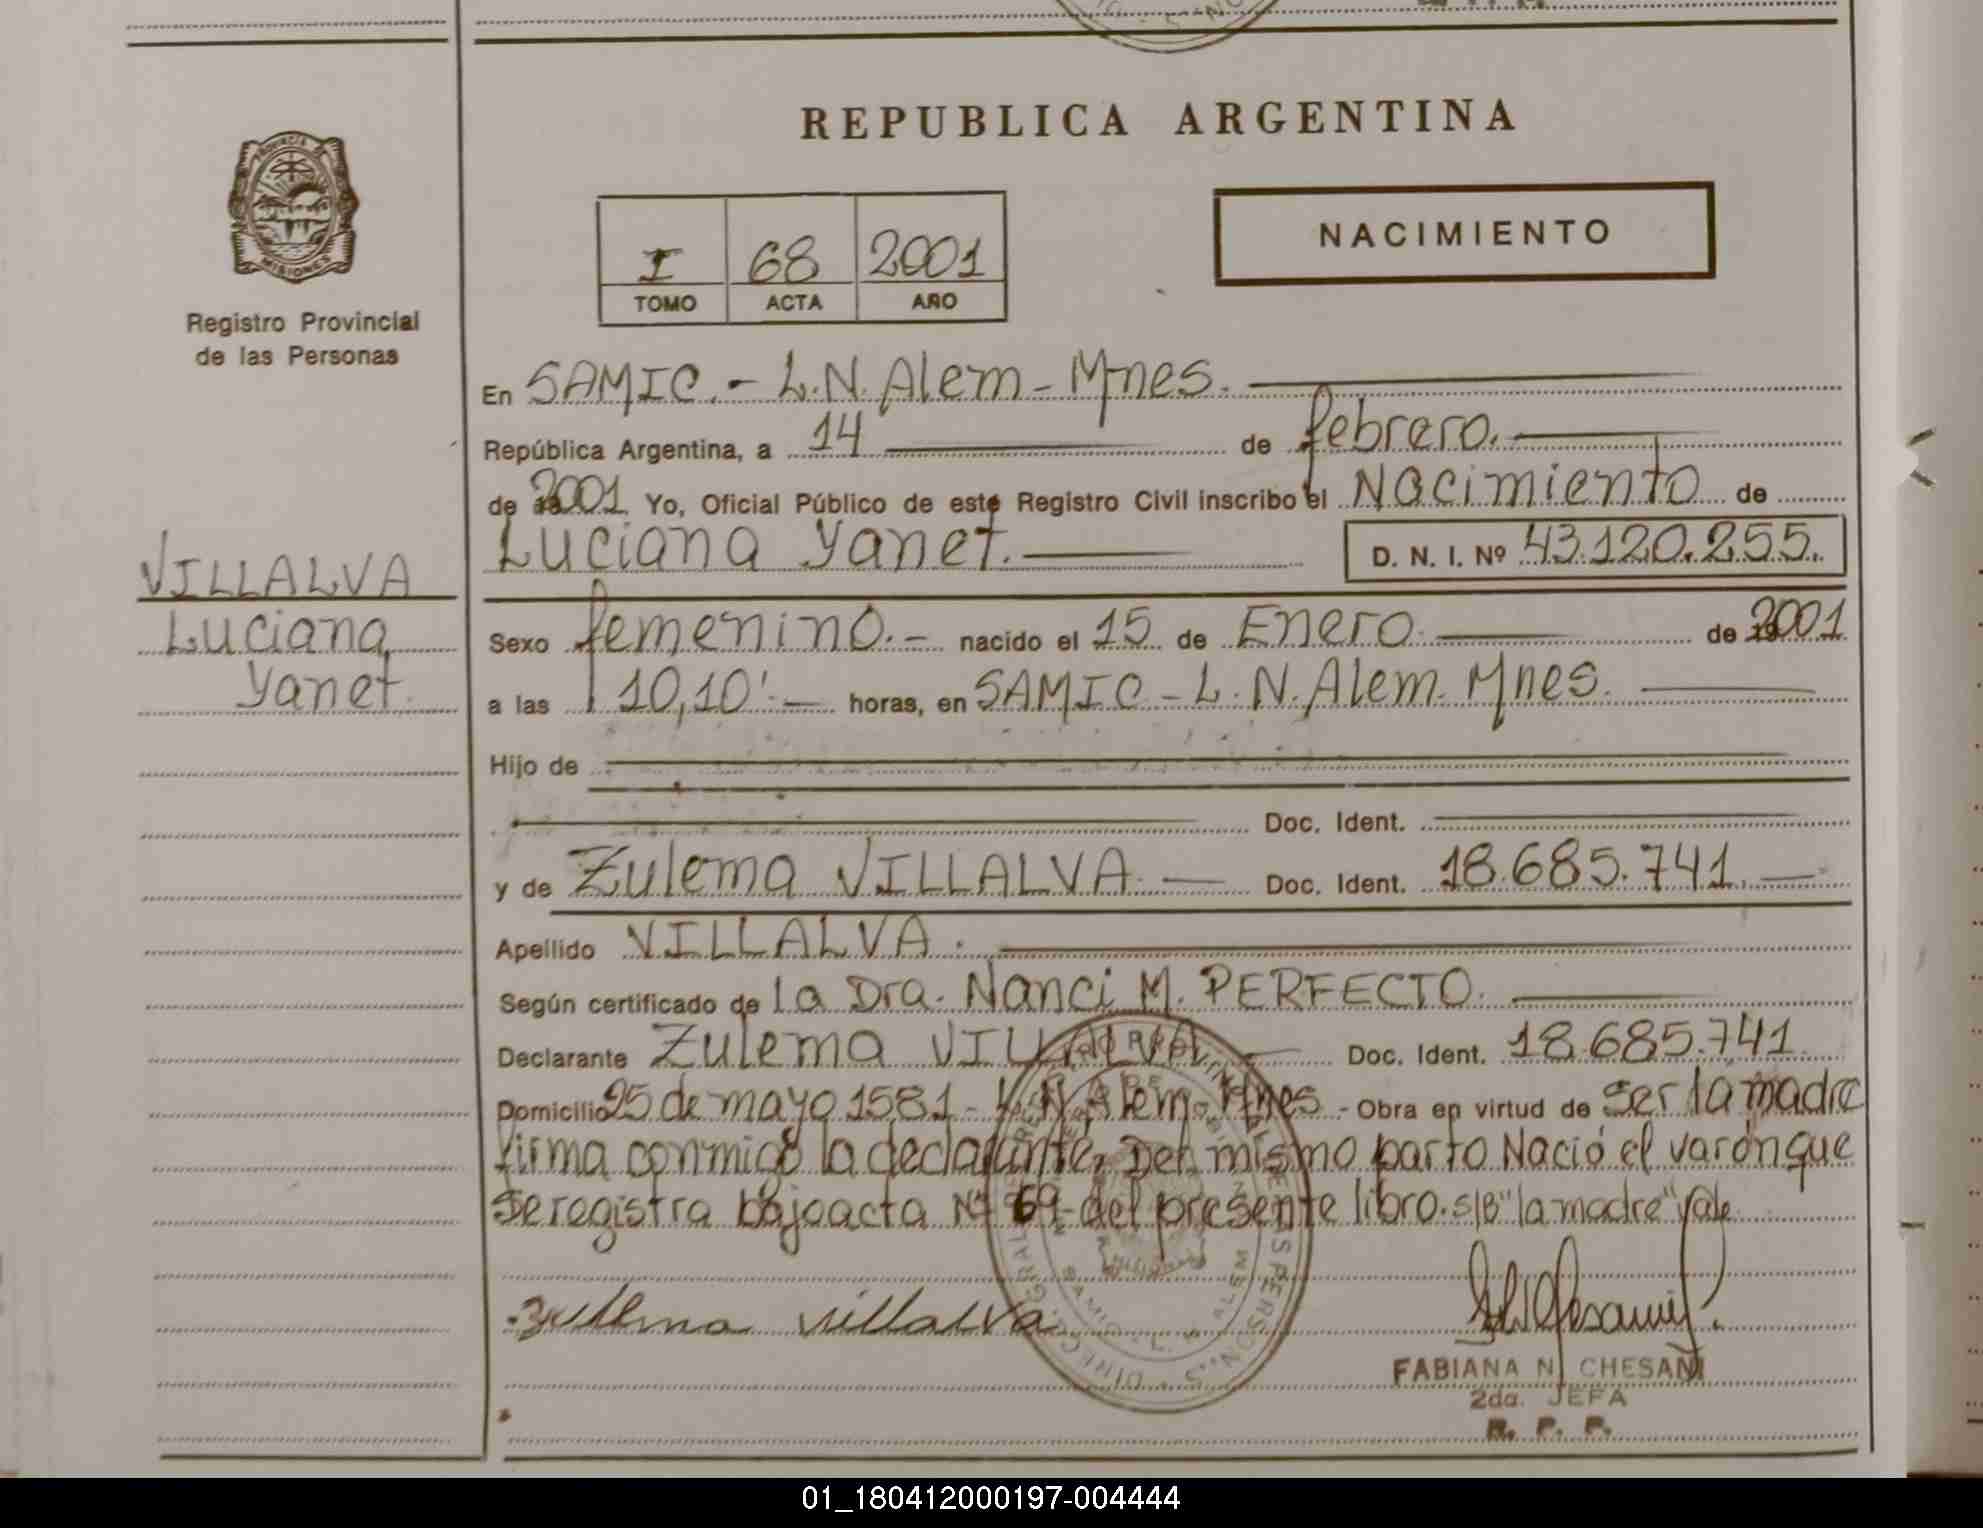 REPUBLICA ARGENTINA
PROVINCIA DE
MISIONES
Registro Provincial
de las Personas
I 68 2001
TOMO ACTA AÑO
NACIMIENTO
En SAMIC.- L.N. Alem - Mnes.
República Argentina, a 14 de febrero.
de 2001 Yo, Oficial Público de este Registro Civil inscribo el Nacimiento de
Luciana Yanet. D. N. I. Nº 43.120.255.
VILLALVA
Luciana
Yanet.
Sexo femenino.- nacido el 15 de Enero de 2001
a las 10,10'.- horas, en SAMIC - L.N. Alem. Mnes.
Hijo de
Doc. Ident.
y de Zulema VILLALVA - Doc. Ident. 18.685.741.-
Apellido VILLALVA.
Según certificado de la Dra. Nanci M. PERFECTO.
Declarante Zulema VILLALVA Doc. Ident. 18.685.741.
Domicilio 25 de mayo 1581 - L.N Alem - Mnes - Obra en virtud de ser la madre
firma conmigo la declarante, Del mismo parto Nació el varón que
se registra bajo acta Nº 69 del presente libro. s/B "la madre" vale
Zullema villalva
FABIANA N. CHESANI
2da. JEFA
R. P. P.
01_180412000197-004444